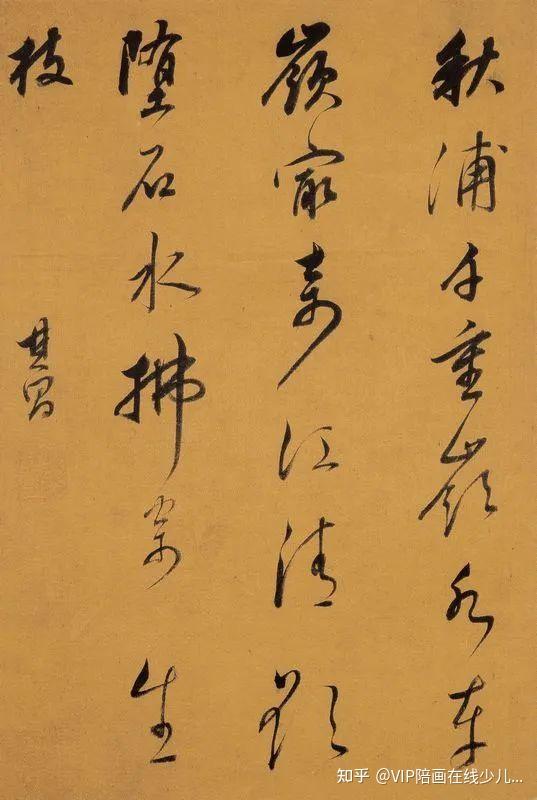 秋浦千重嶺水車
嶺最奇江清欲
墮石水拂寄生
枝
其昌
知乎 @VIP陪画在线少儿...